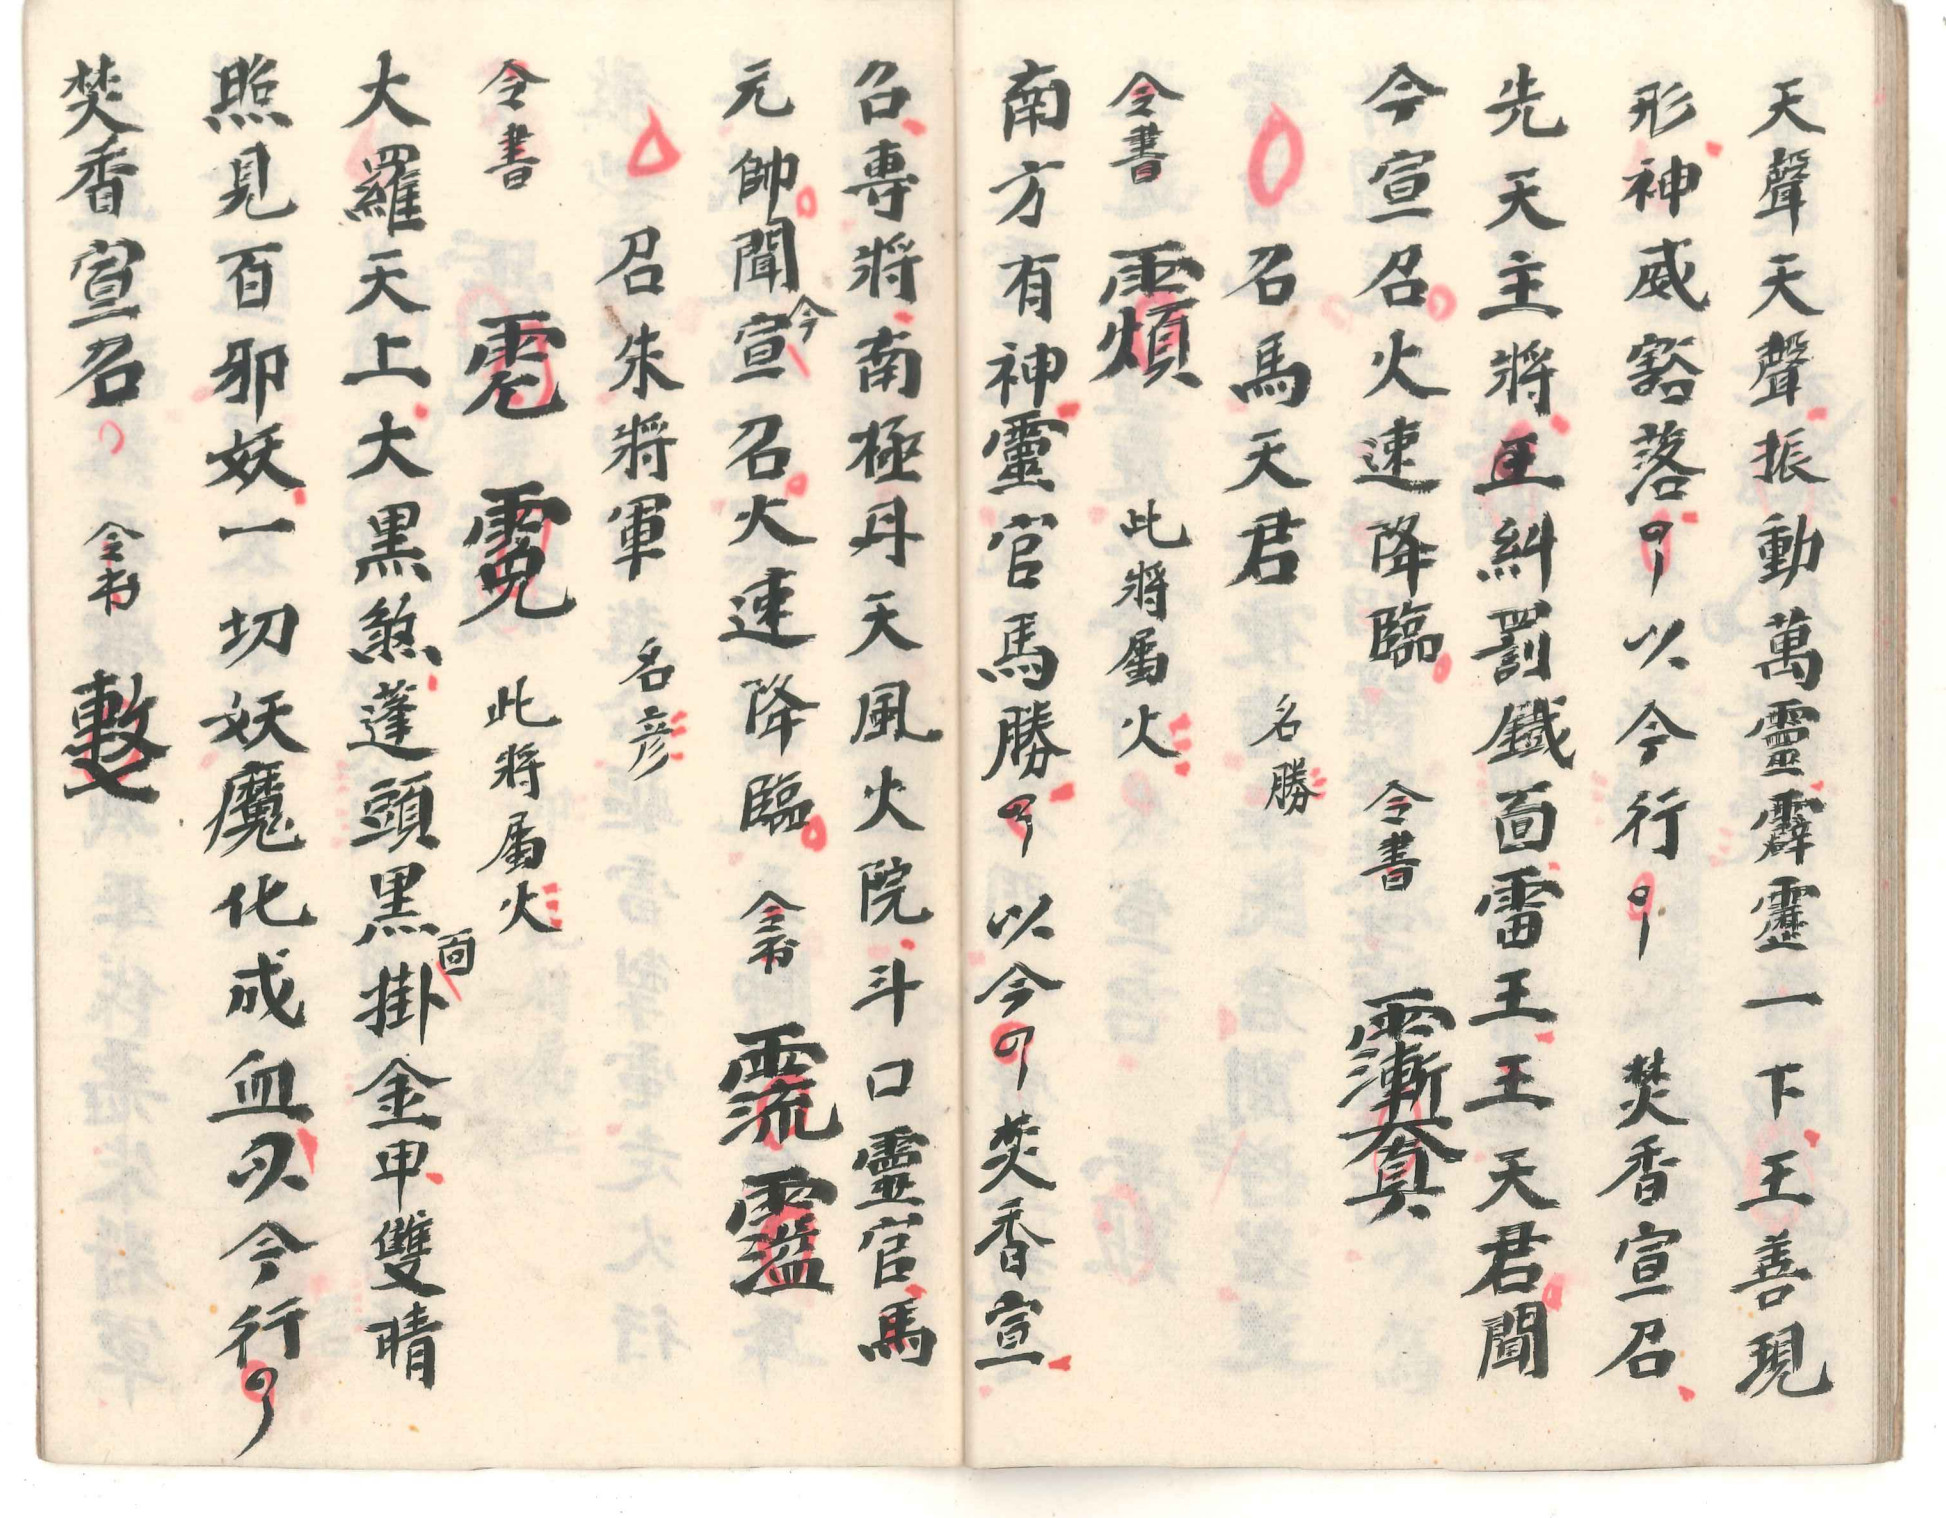 天聲天聲振動萬靈霹靂一下王善現
形神威豁落以令行焚香宣召
先天主將王糾罰鐵面雷王王天君聞
今宣召火速降臨 令書
召馬天君 名勝
令書 此將屬火
南方有神靈官馬勝以令焚香宣
召專將南極丹天風火院斗口靈官馬
元帥聞今宣召火速降臨 令書
召朱將軍 名彦
令書 此將屬火
大羅天上大黑煞蓬頭黑面掛金甲雙睛
照見百邪妖一切妖魔化成血以令行
焚香宣召 令书